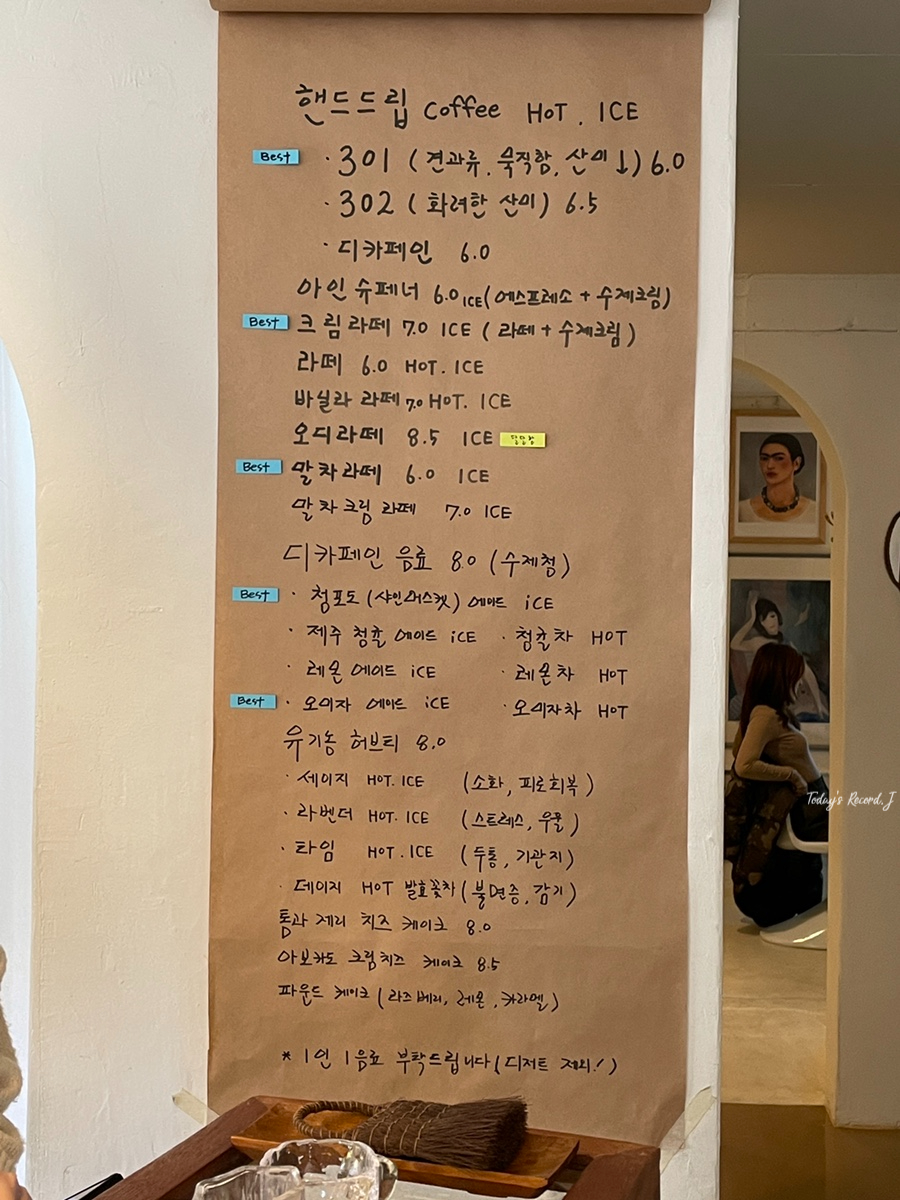 핸드드립 coffee HOT . ICE
Best · 301 (견과류, 묵직함, 산미↓) 6.0
· 302 (화려한 산미) 6.5
· 디카페인 6.0
아인슈페너 6.0 ICE (에스프레소 + 수제크림)
Best 크림라떼 7.0 ICE (라떼 + 수제크림)
라떼 6.0 HOT. ICE
바닐라 라떼 7.0 HOT. ICE
오디라떼 8.5 ICE
Best 말차라떼 6.0 ICE
말차크림 라떼 7.0 ICE
디카페인 음료 8.0 (수제청)
Best · 청포도 (샤인머스켓) 에이드 iCE
· 제주 청귤 에이드 iCE · 청귤차 HOT
· 레몬 에이드 iCE · 레몬차 HOT
Best · 오미자 에이드 iCE · 오미자차 HOT
유기농 허브티 8.0
· 세이지 HOT. ICE (소화, 피로회복)
· 라벤더 HOT. ICE (스트레스, 우울)
· 타임 HOT. ICE (두통, 기관지)
· 데이지 HOT 발효꽃차 (불면증, 감기)
통과 제리 치즈 케이크 8.0
아보카도 크림치즈 케이크 8.5
파운드 케이크 (라즈베리, 레몬, 카라멜)
* 1인 1음료 부탁드립니다 (디저트 제외!)
Today's Record. J